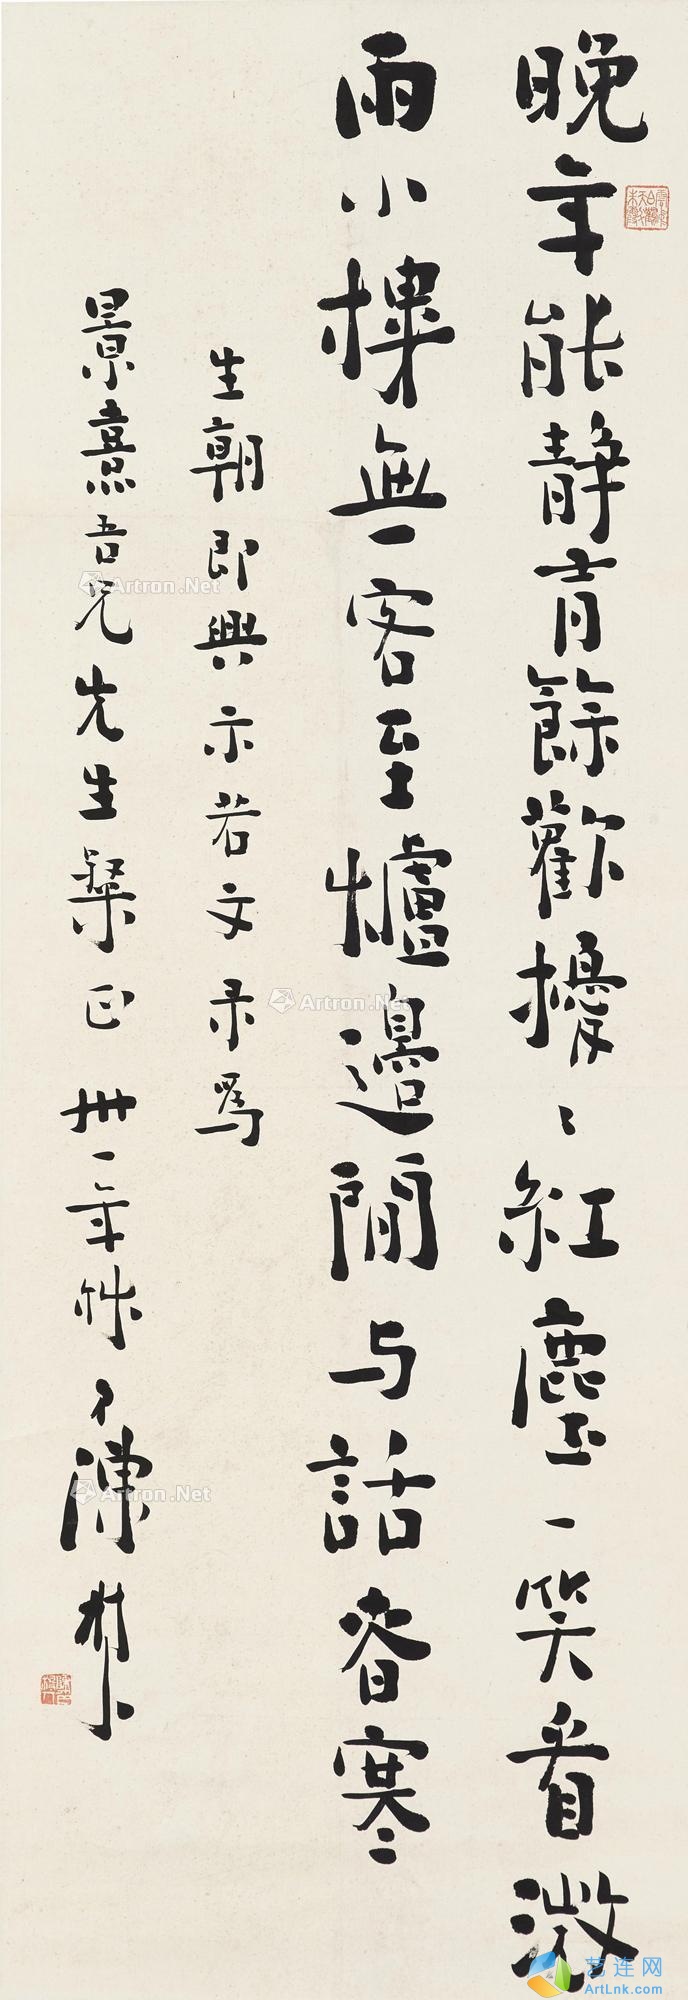 晚年能靜有餘歡擾〻紅塵一笑看微
雨小樓無客至爐邊閒与話春寒
生朝即興示若文录爲
景熹吾兄先生粲正 卅一年秌 陳树人
Artron.Net
Artron.Net
Artron.Net
Artron.Net
艺连网
ArtLnk.com